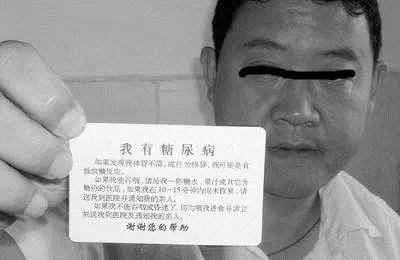 我有糖尿病
如果发现我神智不清,或行为怪异,我可能是有
低血糖反应。
如果我能吞咽,请给我一杯糖水、果汁或其它含
糖份的饮品,如果我在10-15分钟内尚未恢复,请
送我到医院并通知我的亲人。
如果我不能吞咽或昏迷了,切勿喂我进食并请立
刻送我到医院及通知我的亲人。
谢谢您的帮助